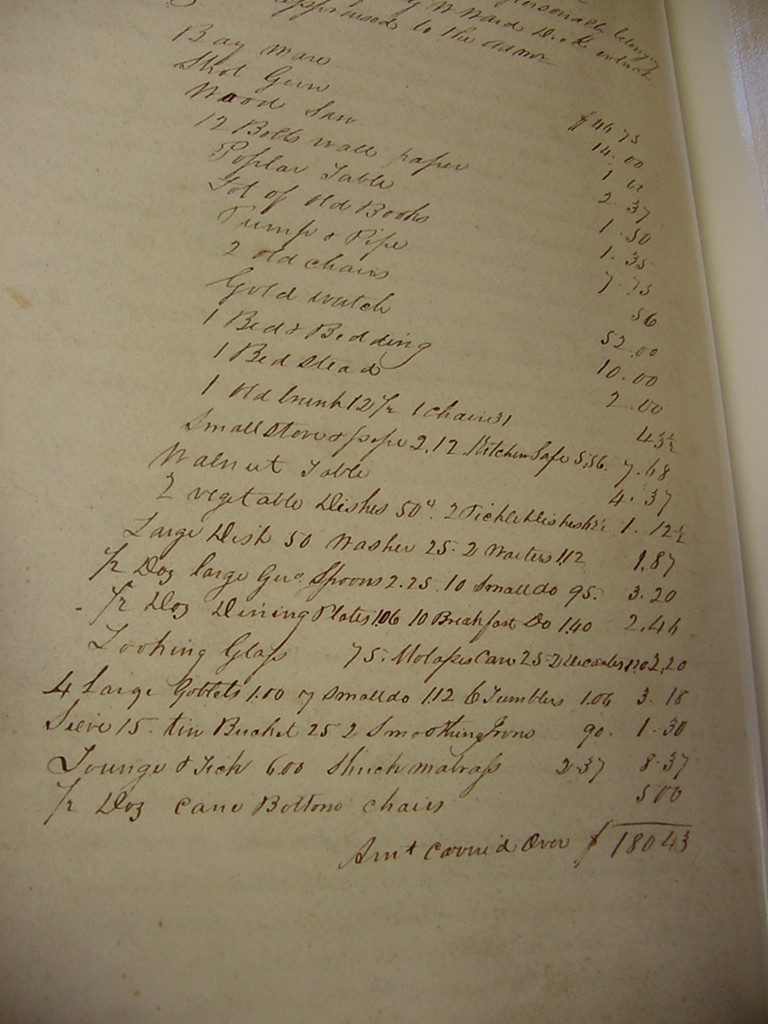 personally belonging
by W Ward Dec'd which
appraised to the admr
Bay Mare $46.75
Shot Gun 14.00
Wood Saw 1
12 Bolts wall paper 2.37
Poplar Table 1.50
Lot of old Books 1.35
Pump & Pipe 7.75
2 old chairs 56
Gold watch 52.00
1 Bed & Bedding 10.00
1 Bed stead 2.00
1 old trunk 12½ 1 chair 31 43½
Small stove & pipe 2.12 Kitchen Safe 5.56. 7.68
Walnut Table 4.37
2 vegetable Dishes 50" 2 Pickle Dishes 1.12½
Large Dish 50 Washer 25. 2 Waiters 1.12 1.87
½ Doz large Spoons 2.25. 10 Small do 95. 3.20
½ Doz Dining Plates 1.06 10 Breakfast Do 1.40 2.46
Looking Glass 75. Molasses Can 25. 2 Decanters 1.20 2.20
4 Large Goblets 1.00 7 Small do 1.12 6 Tumblers 1.06 3.18
Sieve 15. tin Bucket 25 2 Smoothing Irons 90. 1.30
Lounge & Tick 6.00 Shuck matrass 2.37 8.37
½ Doz Cane Bottom chairs 5 00
Amt Carried Over $180 43